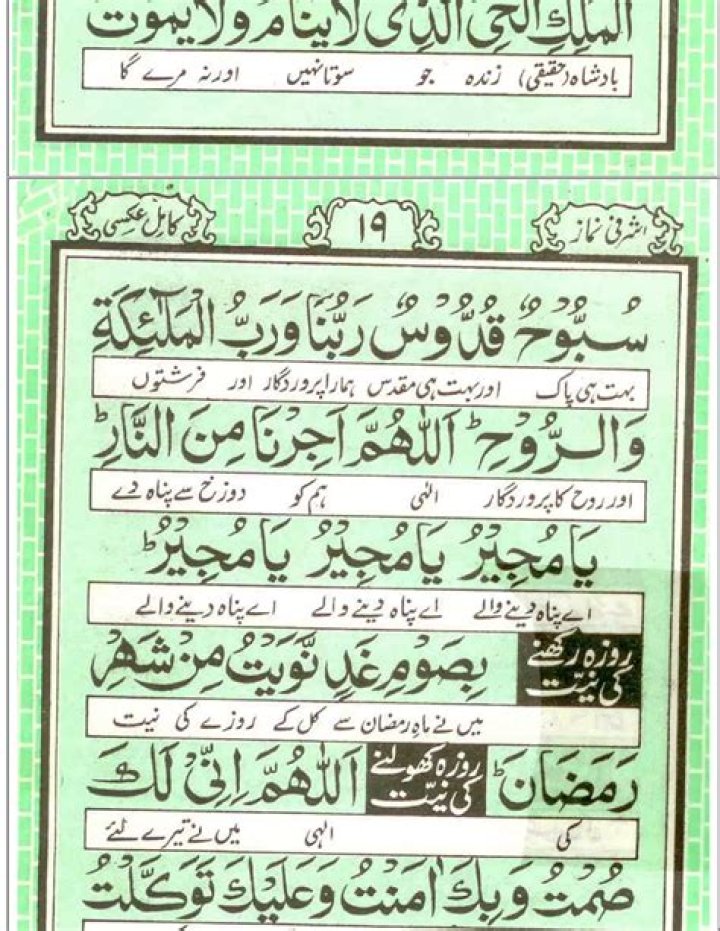 الْمَلِكِ الْحَيِّ الَّذِي لَا يَنَامُ وَلَا يَمُوتُ
بادشاہ (حقیقی) زندہ جو سوتا نہیں اور نہ مرے گا
اشرفی نماز ١٩ کامل عکسی
سُبُّوحٌ قُدُّوْسٌ رَبُّنَا وَرَبُّ الْمَلٰٓئِكَةِ
بہت ہی پاک اور بہت ہی مقدس ہمارا پروردگار اور فرشتوں
وَالرُّوْحِ ؕ اَللّٰهُمَّ اَجِرْنَا مِنَ النَّارِ ؕ
اور روح کا پروردگار الٰہی ہم کو دوزخ سے پناہ دے
يَا مُجِيْرُ يَا مُجِيْرُ يَا مُجِيْرُ ؕ
اے پناہ دینے والے اے پناہ دینے والے اے پناہ دینے والے
روزہ رکھنے کی نیت بِصَوْمِ غَدٍ نَّوَيْتُ مِنْ شَهْرِ
میں نے ماہِ رمضان سے کل کے روزے کی نیت
رَمَضَانَ ؕ روزہ کھولنے کی نیت اَللّٰهُمَّ اِنِّيْ لَكَ
کی الٰہی میں نے تیرے لئے
صُمْتُ وَبِكَ اٰمَنْتُ وَعَلَيْكَ تَوَكَّلْتُ